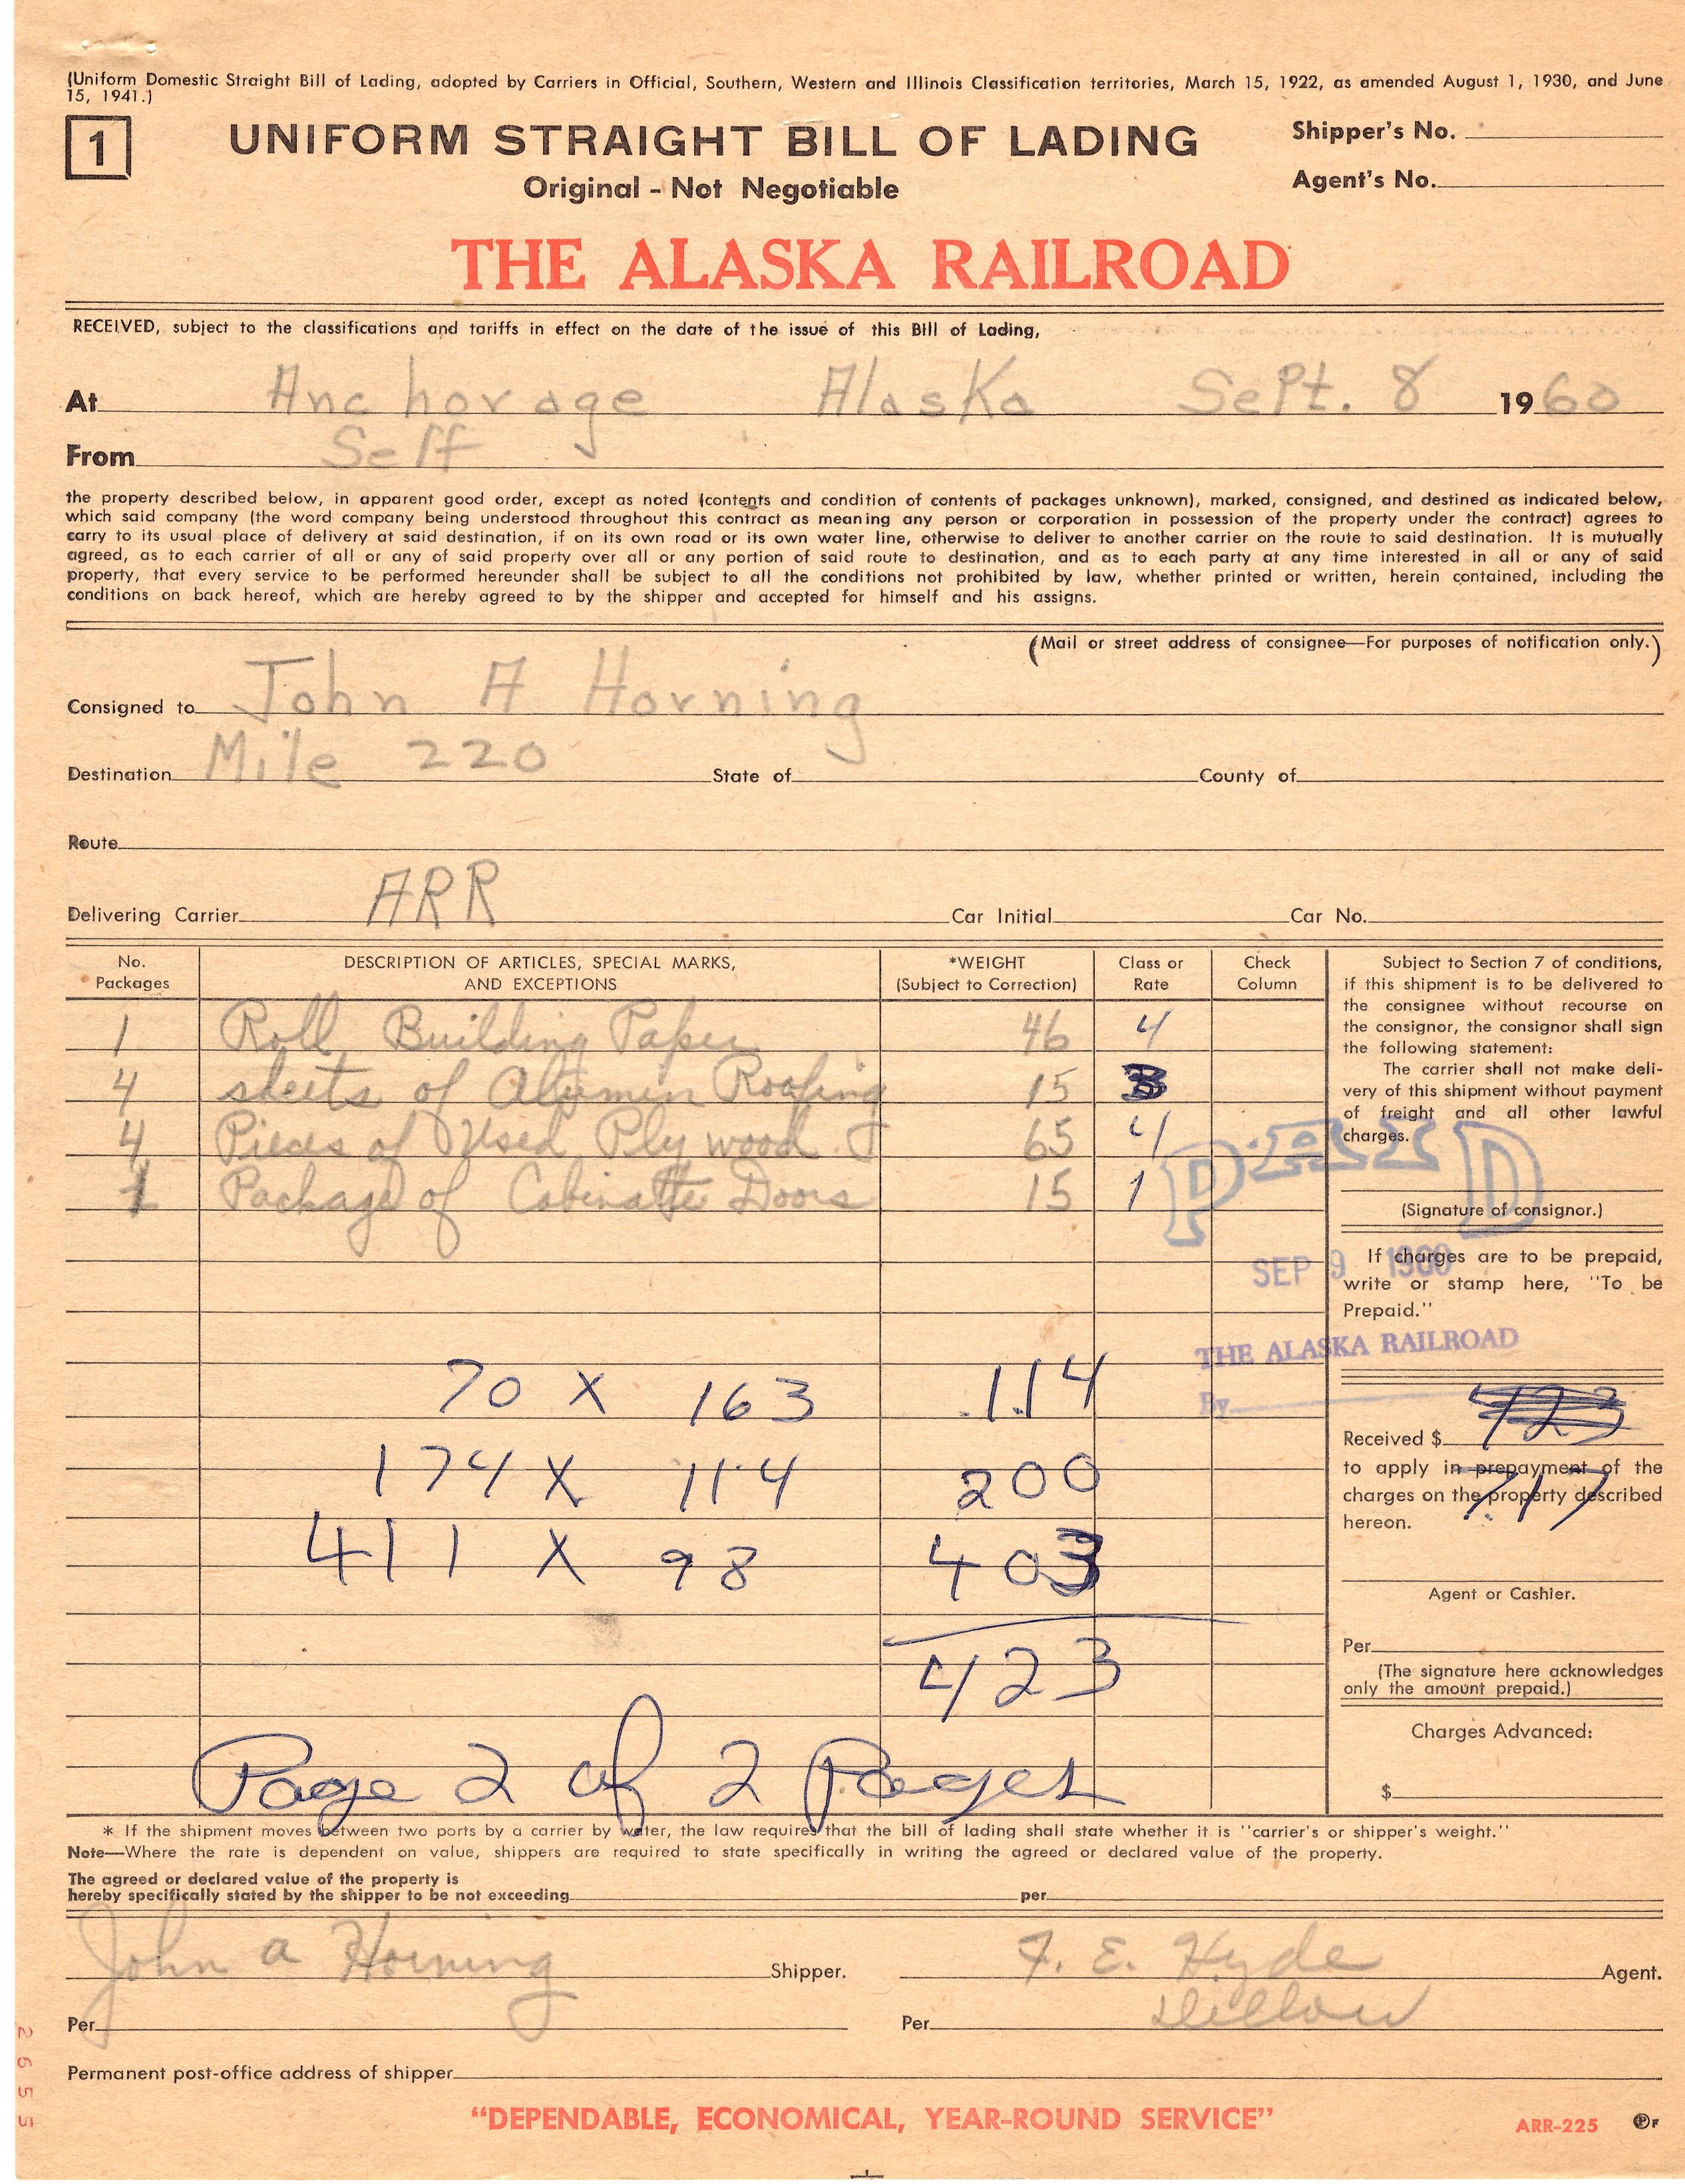 (Uniform Domestic Straight Bill of Lading, adopted by Carriers in Official, Southern, Western and Illinois Classification territories, March 15, 1922, as amended August 1, 1930, and June
15, 1941.)
1
UNIFORM STRAIGHT BILL OF LADING
Original - Not Negotiable
Shipper's No.
Agent's No.
THE ALASKA RAILROAD
RECEIVED, subject to the classifications and tariffs in effect on the date of the issue of this Bill of Lading,
At Anchorage Alaska Sept. 8 1960
From Self
the property described below, in apparent good order, except as noted (contents and condition of contents of packages unknown), marked, consigned, and destined as indicated below,
which said company (the word company being understood throughout this contract as meaning any person or corporation in possession of the property under the contract) agrees to
carry to its usual place of delivery at said destination, if on its own road or its own water line, otherwise to deliver to another carrier on the route to said destination. It is mutually
agreed, as to each carrier of all or any of said property over all or any portion of said route to destination, and as to each party at any time interested in all or any of said
property, that every service to be performed hereunder shall be subject to all the conditions not prohibited by law, whether printed or written, herein contained, including the
conditions on back hereof, which are hereby agreed to by the shipper and accepted for himself and his assigns.
(Mail or street address of consignee—For purposes of notification only.)
Consigned to John A Horning
Destination Mile 220 State of County of
Route
Delivering Carrier ARR Car Initial Car No.
No. Packages
DESCRIPTION OF ARTICLES, SPECIAL MARKS, AND EXCEPTIONS
*WEIGHT (Subject to Correction)
Class or Rate
Check Column
1 Roll Building Paper 46 4
4 sheets of Alumen Roofing 15 3
4 Pieces of Used Ply wood 65 4
1 Package of Cabinatte Doors 15 1
70 X 163 1.14
174 X 114 200
411 X 98 403
423
Page 2 of 2 Pages
Subject to Section 7 of conditions,
if this shipment is to be delivered to
the consignee without recourse on
the consignor, the consignor shall sign
the following statement:
The carrier shall not make deli-
very of this shipment without payment
of freight and all other lawful
charges.
(Signature of consignor.)
PAID
SEP 9 1960
THE ALASKA RAILROAD
By
If charges are to be prepaid,
write or stamp here, "To be
Prepaid."
423
Received $
to apply in prepayment of the
charges on the property described
hereon.
7.17
Agent or Cashier.
Per
(The signature here acknowledges
only the amount prepaid.)
Charges Advanced:
$
* If the shipment moves between two ports by a carrier by water, the law requires that the bill of lading shall state whether it is "carrier's or shipper's weight."
Note—Where the rate is dependent on value, shippers are required to state specifically in writing the agreed or declared value of the property.
The agreed or declared value of the property is
hereby specifically stated by the shipper to be not exceeding per
John A Horning Shipper. F. E. Hyde Agent.
Per Per
Permanent post-office address of shipper
2655
"DEPENDABLE, ECONOMICAL, YEAR-ROUND SERVICE"
ARR-225 PF